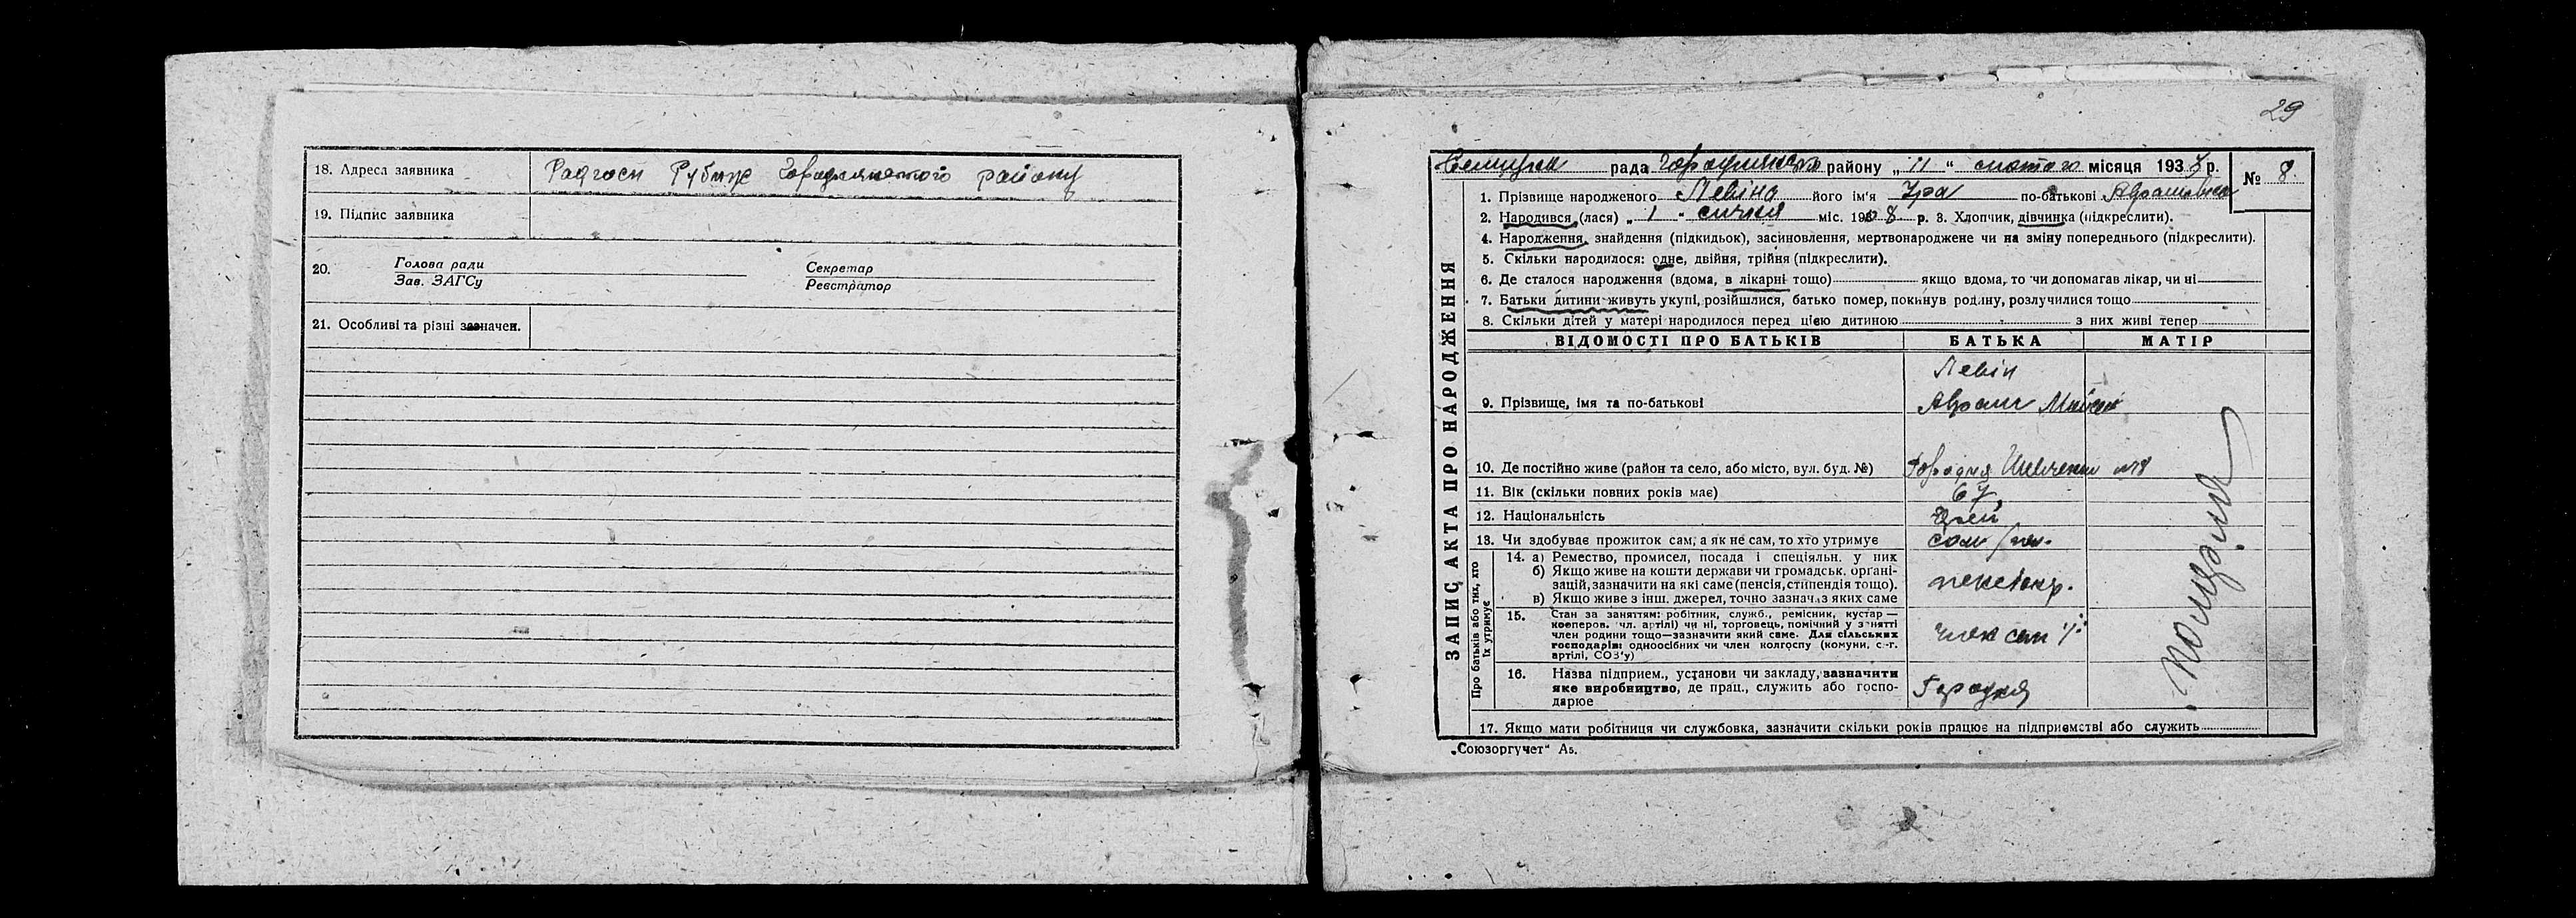 18. Адреса заявника Радгосп Рубіж Городнянського району
19. Підпис заявника
20. Голова ради
Зав. ЗАГСу
Секретар
Реєстратор
21. Особливі та різні зазначен.
29
рада Городнянсько району „11“ лютого місяця 1938 р.
№ 8
ЗАПИС АКТА ПРО НАРОДЖЕННЯ
1. Прізвище народженого Левіна його ім'я Іра по-батькові Абрамовна
2. Народився (лася) „1“ січня міс. 1938 р. 3. Хлопчик, дівчинка (підкреслити).
4. Народження, знайдення (підкидьок), засиновлення, мертвонароджене чи на зміну попереднього (підкреслити).
5. Скільки народилося: одне, двійня, трійня (підкреслити).
6. Де сталося народження (вдома, в лікарні тощо) якщо вдома, то чи допомагав лікар, чи ні
7. Батьки дитини живуть укупі, розійшлися, батько помер, покинув родину, розлучилися тощо
8. Скільки дітей у матері народилося перед цією дитиною з них живі тепер
ВІДОМОСТІ ПРО БАТЬКІВ БАТЬКА МАТІР
Левін
9. Прізвище, імя та по-батькові Абрам
10. Де постійно живе (район та село, або місто, вул. буд. №) Городня Шевченка №18
11. Вік (скільки повних років має) 67
12. Національність Єврей
13. Чи здобуває прожиток сам, а як не сам, то хто утримує сам
Про батьків або тих, хто їх утримує
14. а) Ремество, промисел, посада і спеціяльн. у них
б) Якщо живе на кошти держави чи громадськ. органі-
зацій, зазначити на які саме (пенсія, стипендія тощо).
в) Якщо живе з інш. джерел, точно зазнач. з яких саме
пенсіонер.
15. Стан за заняттям: робітник, служб., ремісник, кустар —
кооперов. чл. артілі) чи ні, торговець, помічний у занятті
член родини тощо—зазначити який саме. Для сільських
господарів: одноосібних чи член колгоспу (комуни, с.-г.
артілі, СОЗ'у)
16. Назва підприєм., установи чи закладу, зазначити
яке виробництво, де прац., служить або госпо-
дарює
Городня
17. Якщо мати робітниця чи службовка, зазначити скільки років працює на підприємстві або служить
„Союзоргучет“ А₅.